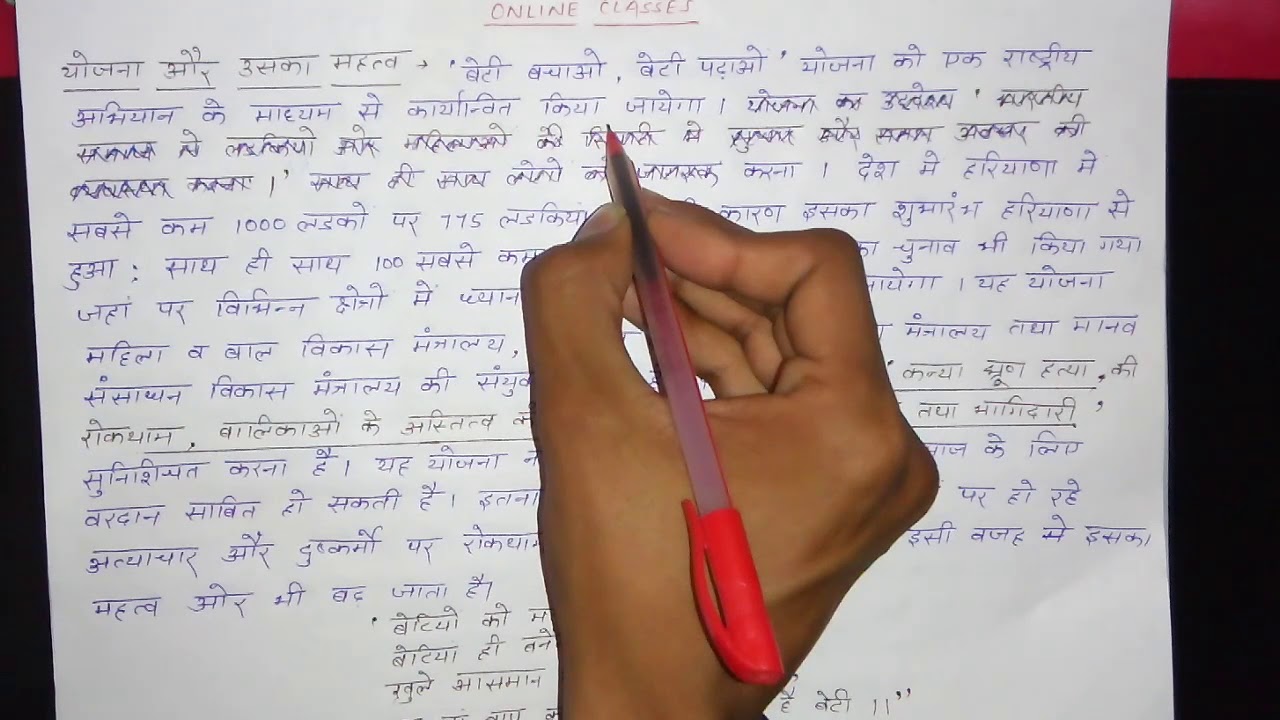 ONLINE CLASSES
योजना और उसका महत्व → 'बेटी बचाओ, बेटी पढ़ाओ' योजना को एक राष्ट्रीय
अभियान के माध्यम से कार्यान्वित किया जायेगा। योजना का उद्देश्य 'भारतीय
समाज मे लडकियो और महिलाओ की स्थिती मे सुधार और समान अवसर की
करना।' साथ ही साथ लोगो को जागरूक करना। देश मे हरियाणा मे
सबसे कम 1000 लडको पर 775 लडकिया कारण इसका शुभारंभ हरियाणा से
हुआ: साथ ही साथ 100 सबसे कम का चुनाव भी किया गया
जहां पर विभिन्न क्षेत्रो में ध्यान जायेगा। यह योजना
महिला व बाल विकास मंत्रालय, मंत्रालय तथा मानव
संसाधन विकास मंत्रालय की 'कन्या भ्रूण हत्या, की
रोकथाम, बालिकाओं के अस्तित्व तथा भागिदारी'
सुनिश्चित करना है। यह योजना के लिए
वरदान साबित हो सकती है। इतना पर हो रहे
अत्याचार और दुष्कर्मो पर रोकथाम इसी वजह से इसका
महत्व ओर भी बढ़ जाता है।
'बेटियो को
बेटिया ही बने
खुले आसमान
है बेटी।।"